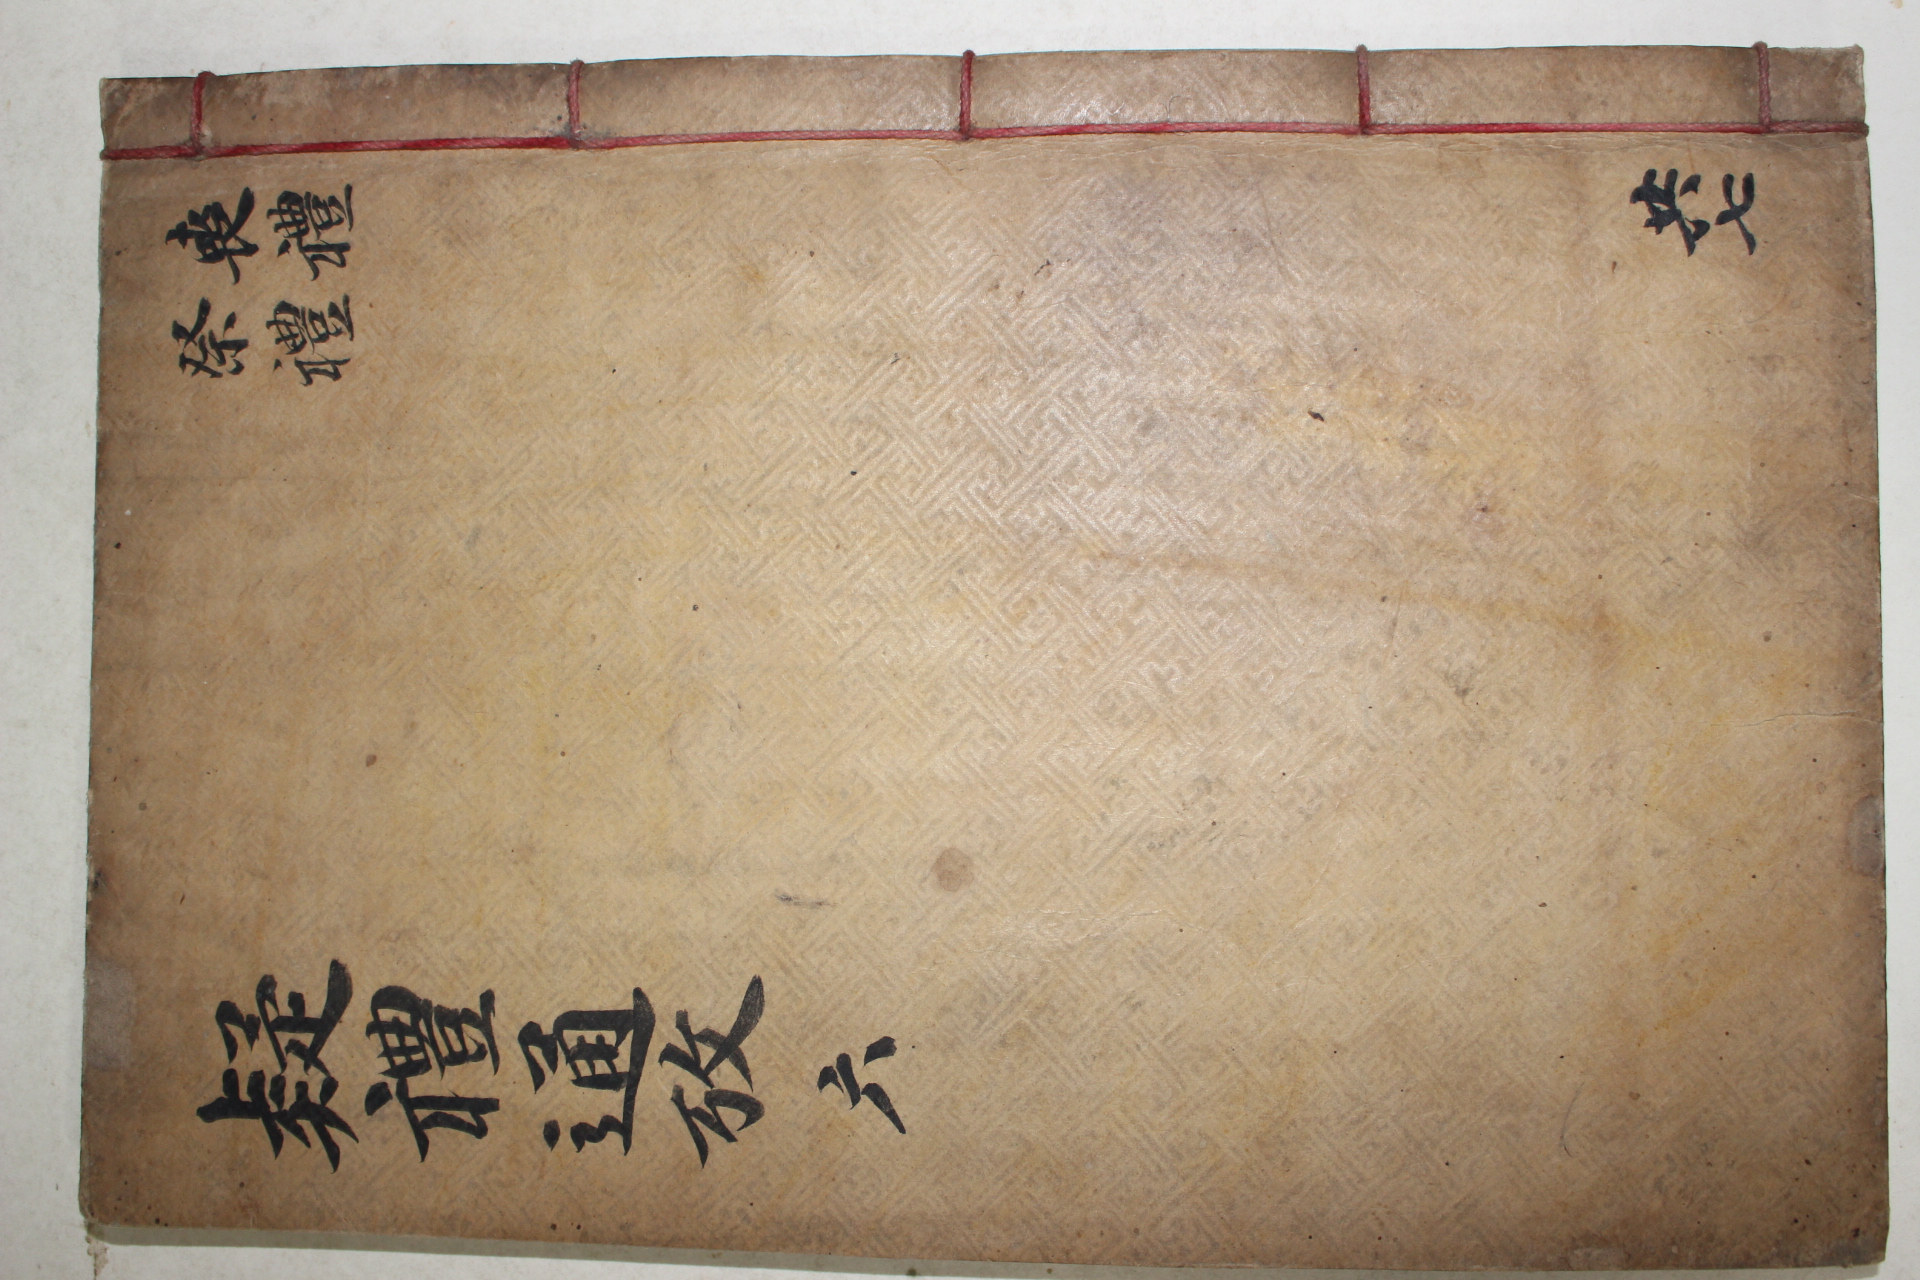 喪禮
祭禮
共七
疑禮通攷 六